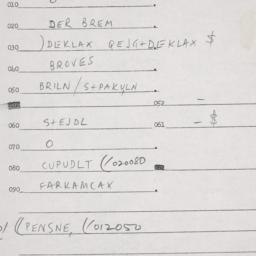 010
020 DER BREM
030 )DEKLAX QEJG+DEKLAX $
040 BROVES
050 BRILN/S+PAKYLN
052 –
060 S+EJDL 061 – $
070 O
080 CUPUDLT (/020080
090 FARKAMCAX
((PENSNE, (/012050